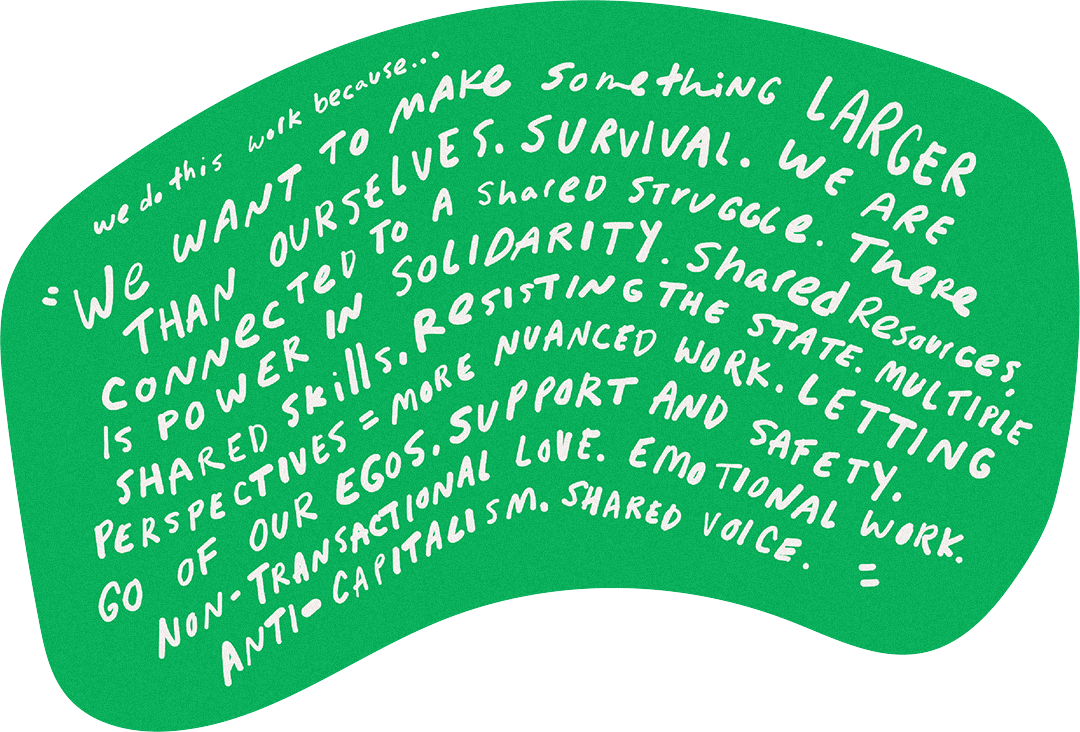 we do this work because...
"We WANT TO MAKE something LARGER
THAN OURSELVES. SURVIVAL. WE ARE
CONNECTED TO A shared STRUGGLE. There
IS POWER IN SOLIDARITY. Shared Resources,
SHARED skills. Resisting THE STATE. MULTIPLE
PERSPECTIVES = MORE NUANCED WORK. LETTING
GO OF OUR EGOS. SUPPORT AND SAFETY.
NON-TRANSACTIONAL LOVE. EMOTIONAL WORK.
ANTI-CAPITALISM. SHARED VOICE. "